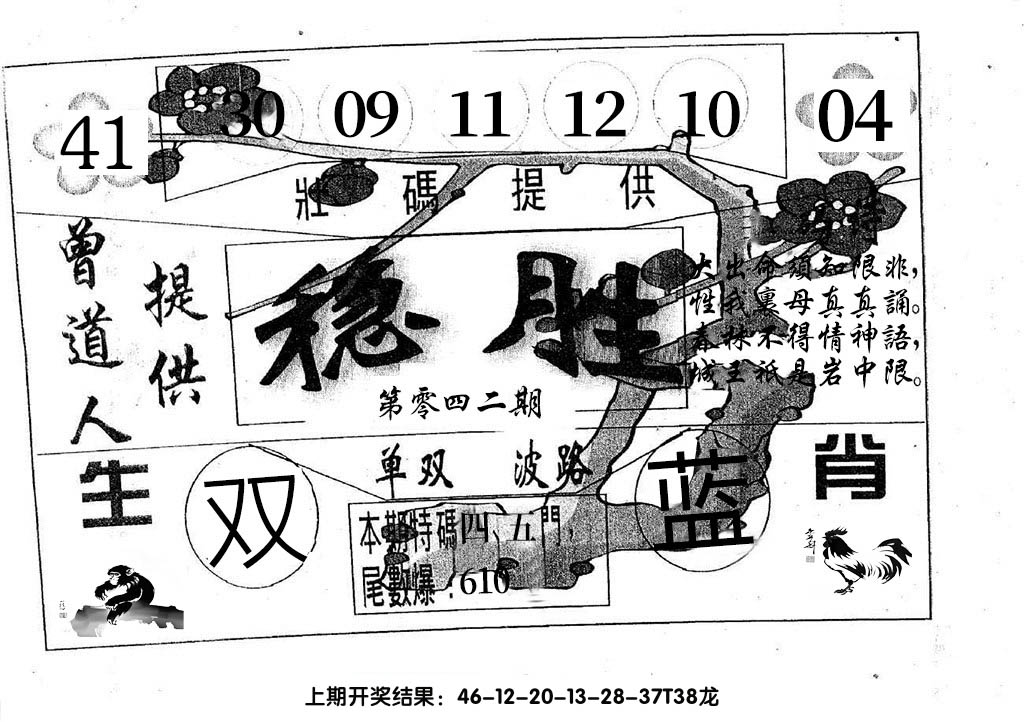 41 30 09 11 12 10 04
壯碼提供
曾道人
提供
稳胜
第零四二期
大出命須知限非，
性我裏母真真誦。
春林不得情神語，
城王祗是岩中限。
单双 波路
生肖
双
蓝
本期特碼四、五門，
尾數爆：610
上期开奖结果：46-12-20-13-28-37T38龙